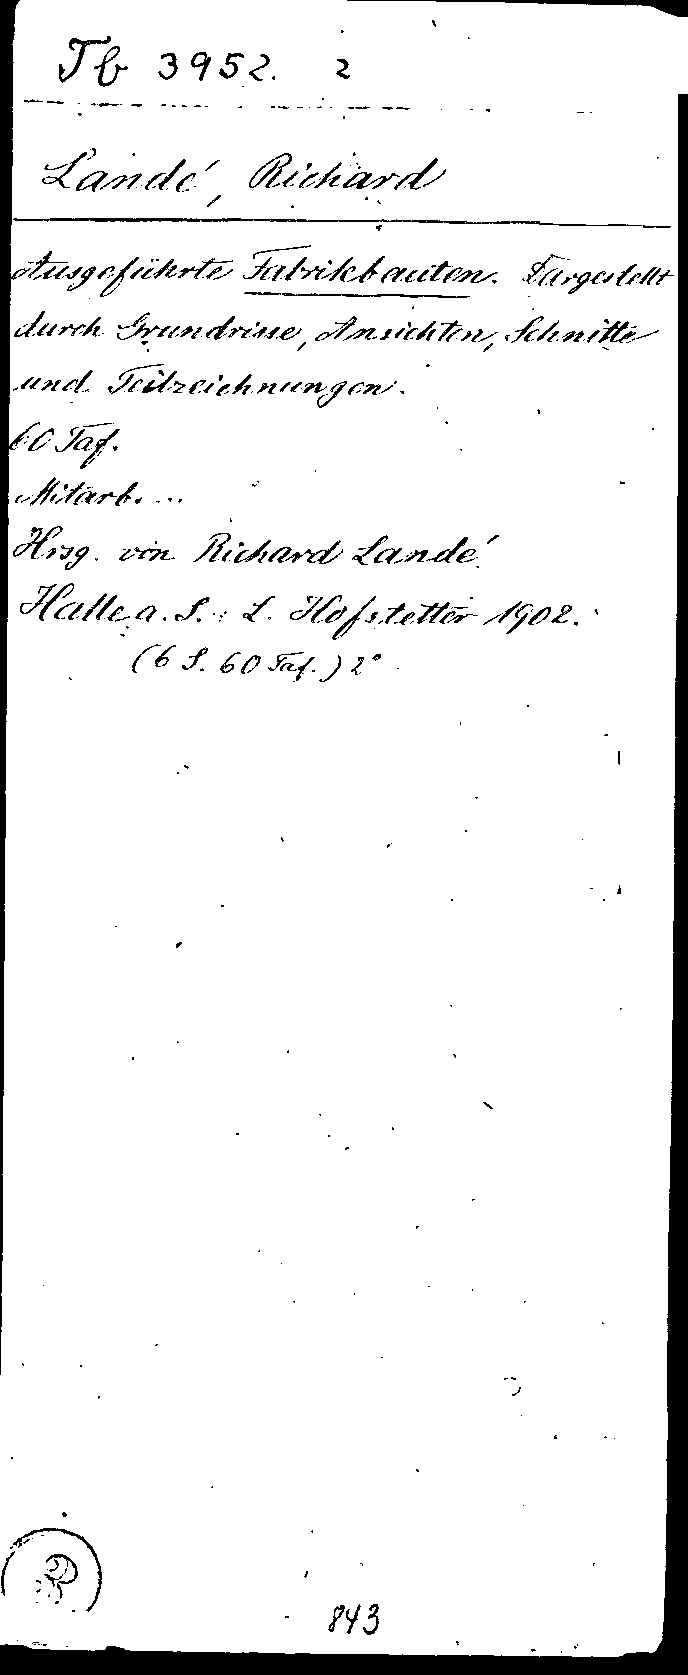 Tb 3952. 2
Landé, Richard
Ausgeführte Fabrikbauten. Dargestellt
durch Grundrisse, Ansichten, Schnitte
und Teilzeichnungen.
60 Taf.
Mitarb. ...
Hrsg. von Richard Landé.
Halle a. S.: L. Hofstetter 1902.
(6 S. 60 Taf.) 2°
843